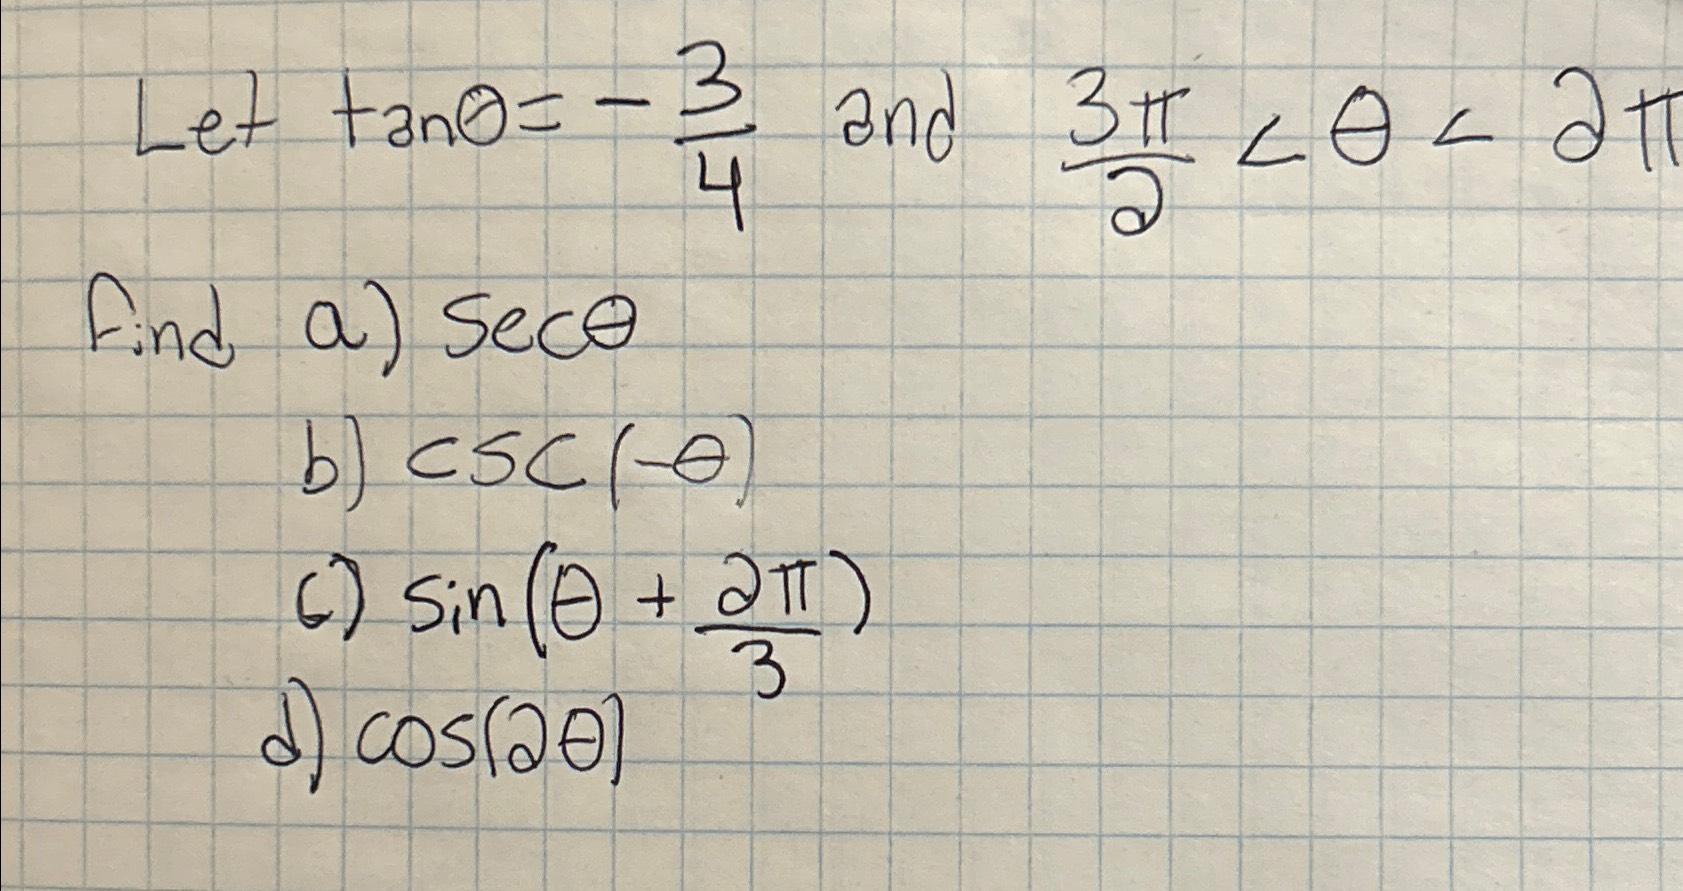 Let tanθ = - 3/4 and 3π/2 < θ < 2π
find a) secθ
b) csc(-θ)
c) sin(θ + 2π/3)
d) cos(2θ)